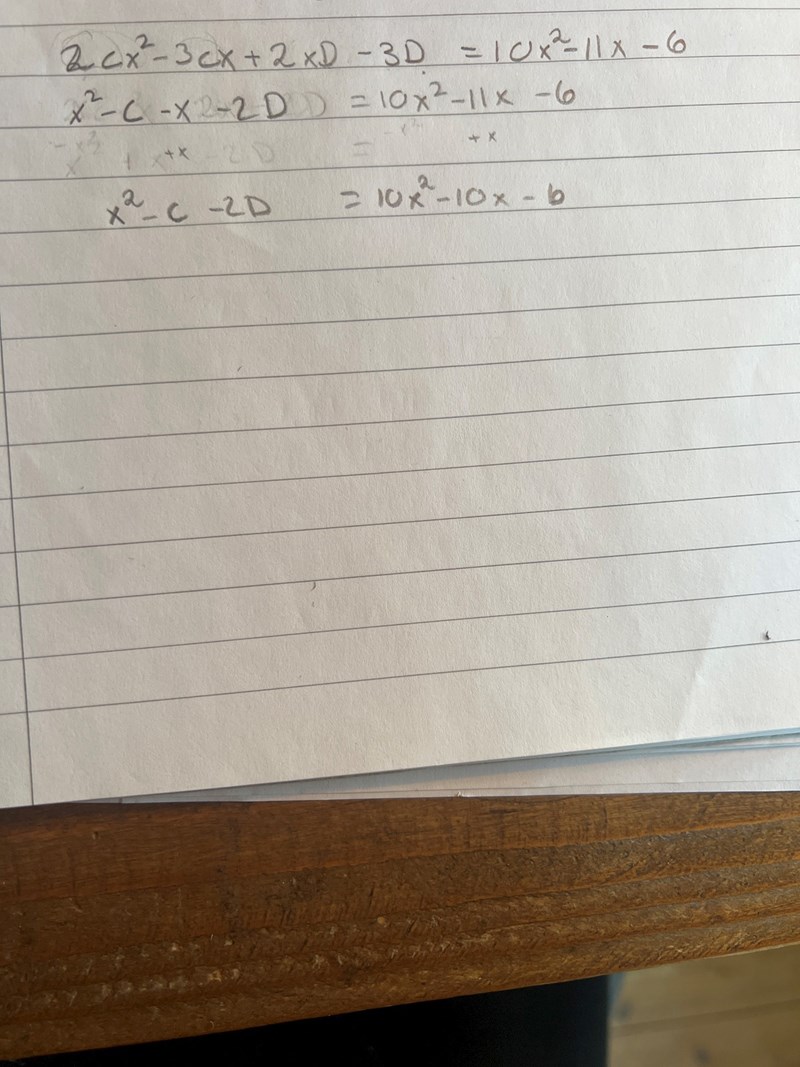 2cx²-3cx+2xD-3D =10x²-11x-6
x²-c-x-2D =10x²-11x-6
+x +x
x²-c-2D =10x²-10x-6